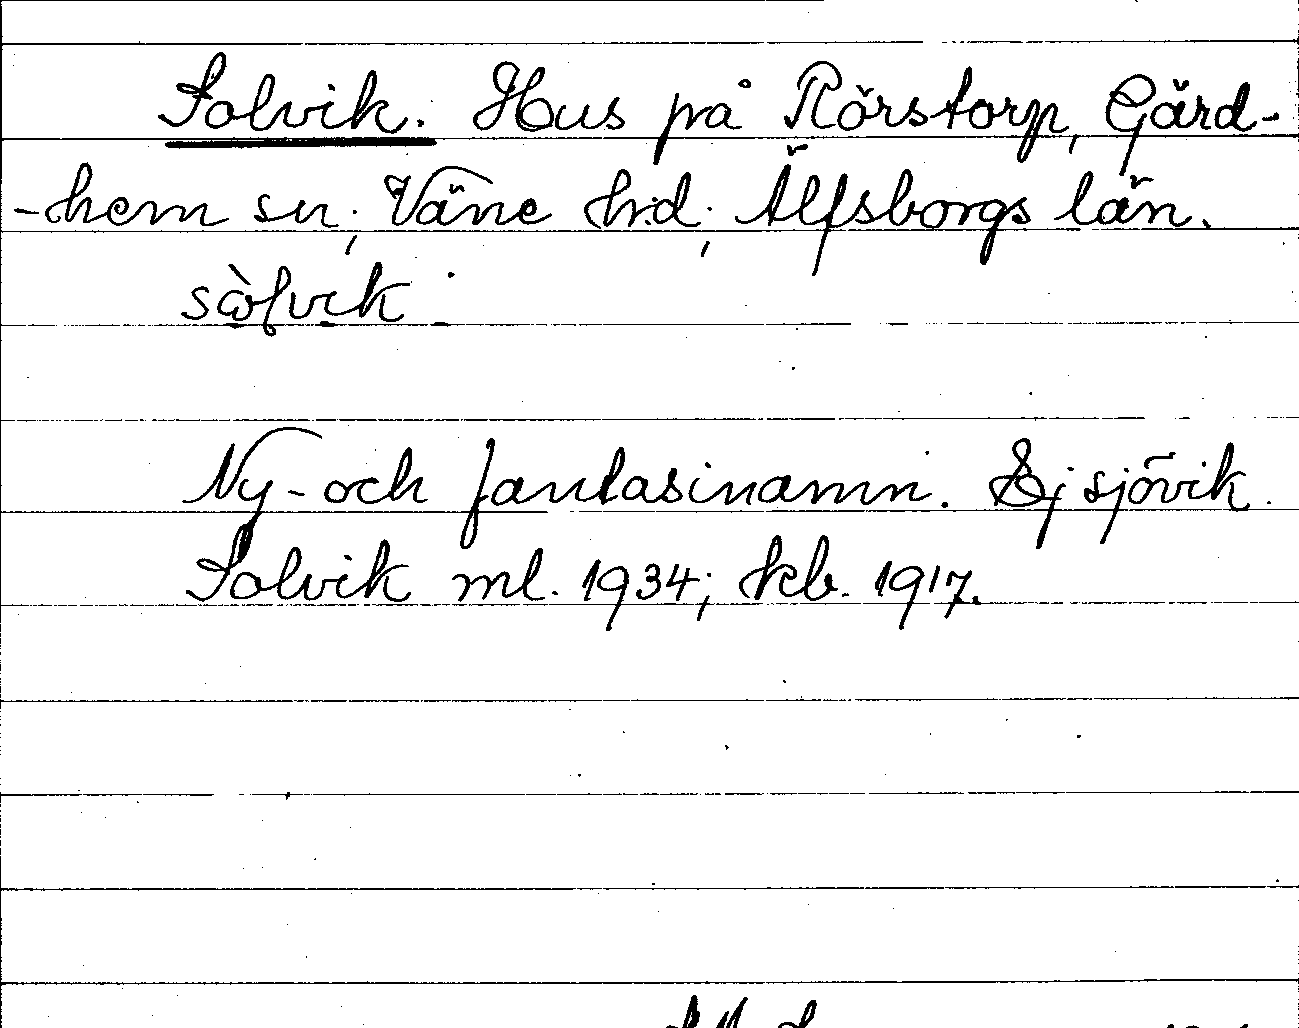 Solvik. Hus på Rörstorp, Gärd-
-hem sn; Väne hrd; Älfsborgs län.
sòlvik
Ny- och fantasinamn. Ej sjövik.
Solvik ml. 1934; kb. 1917.